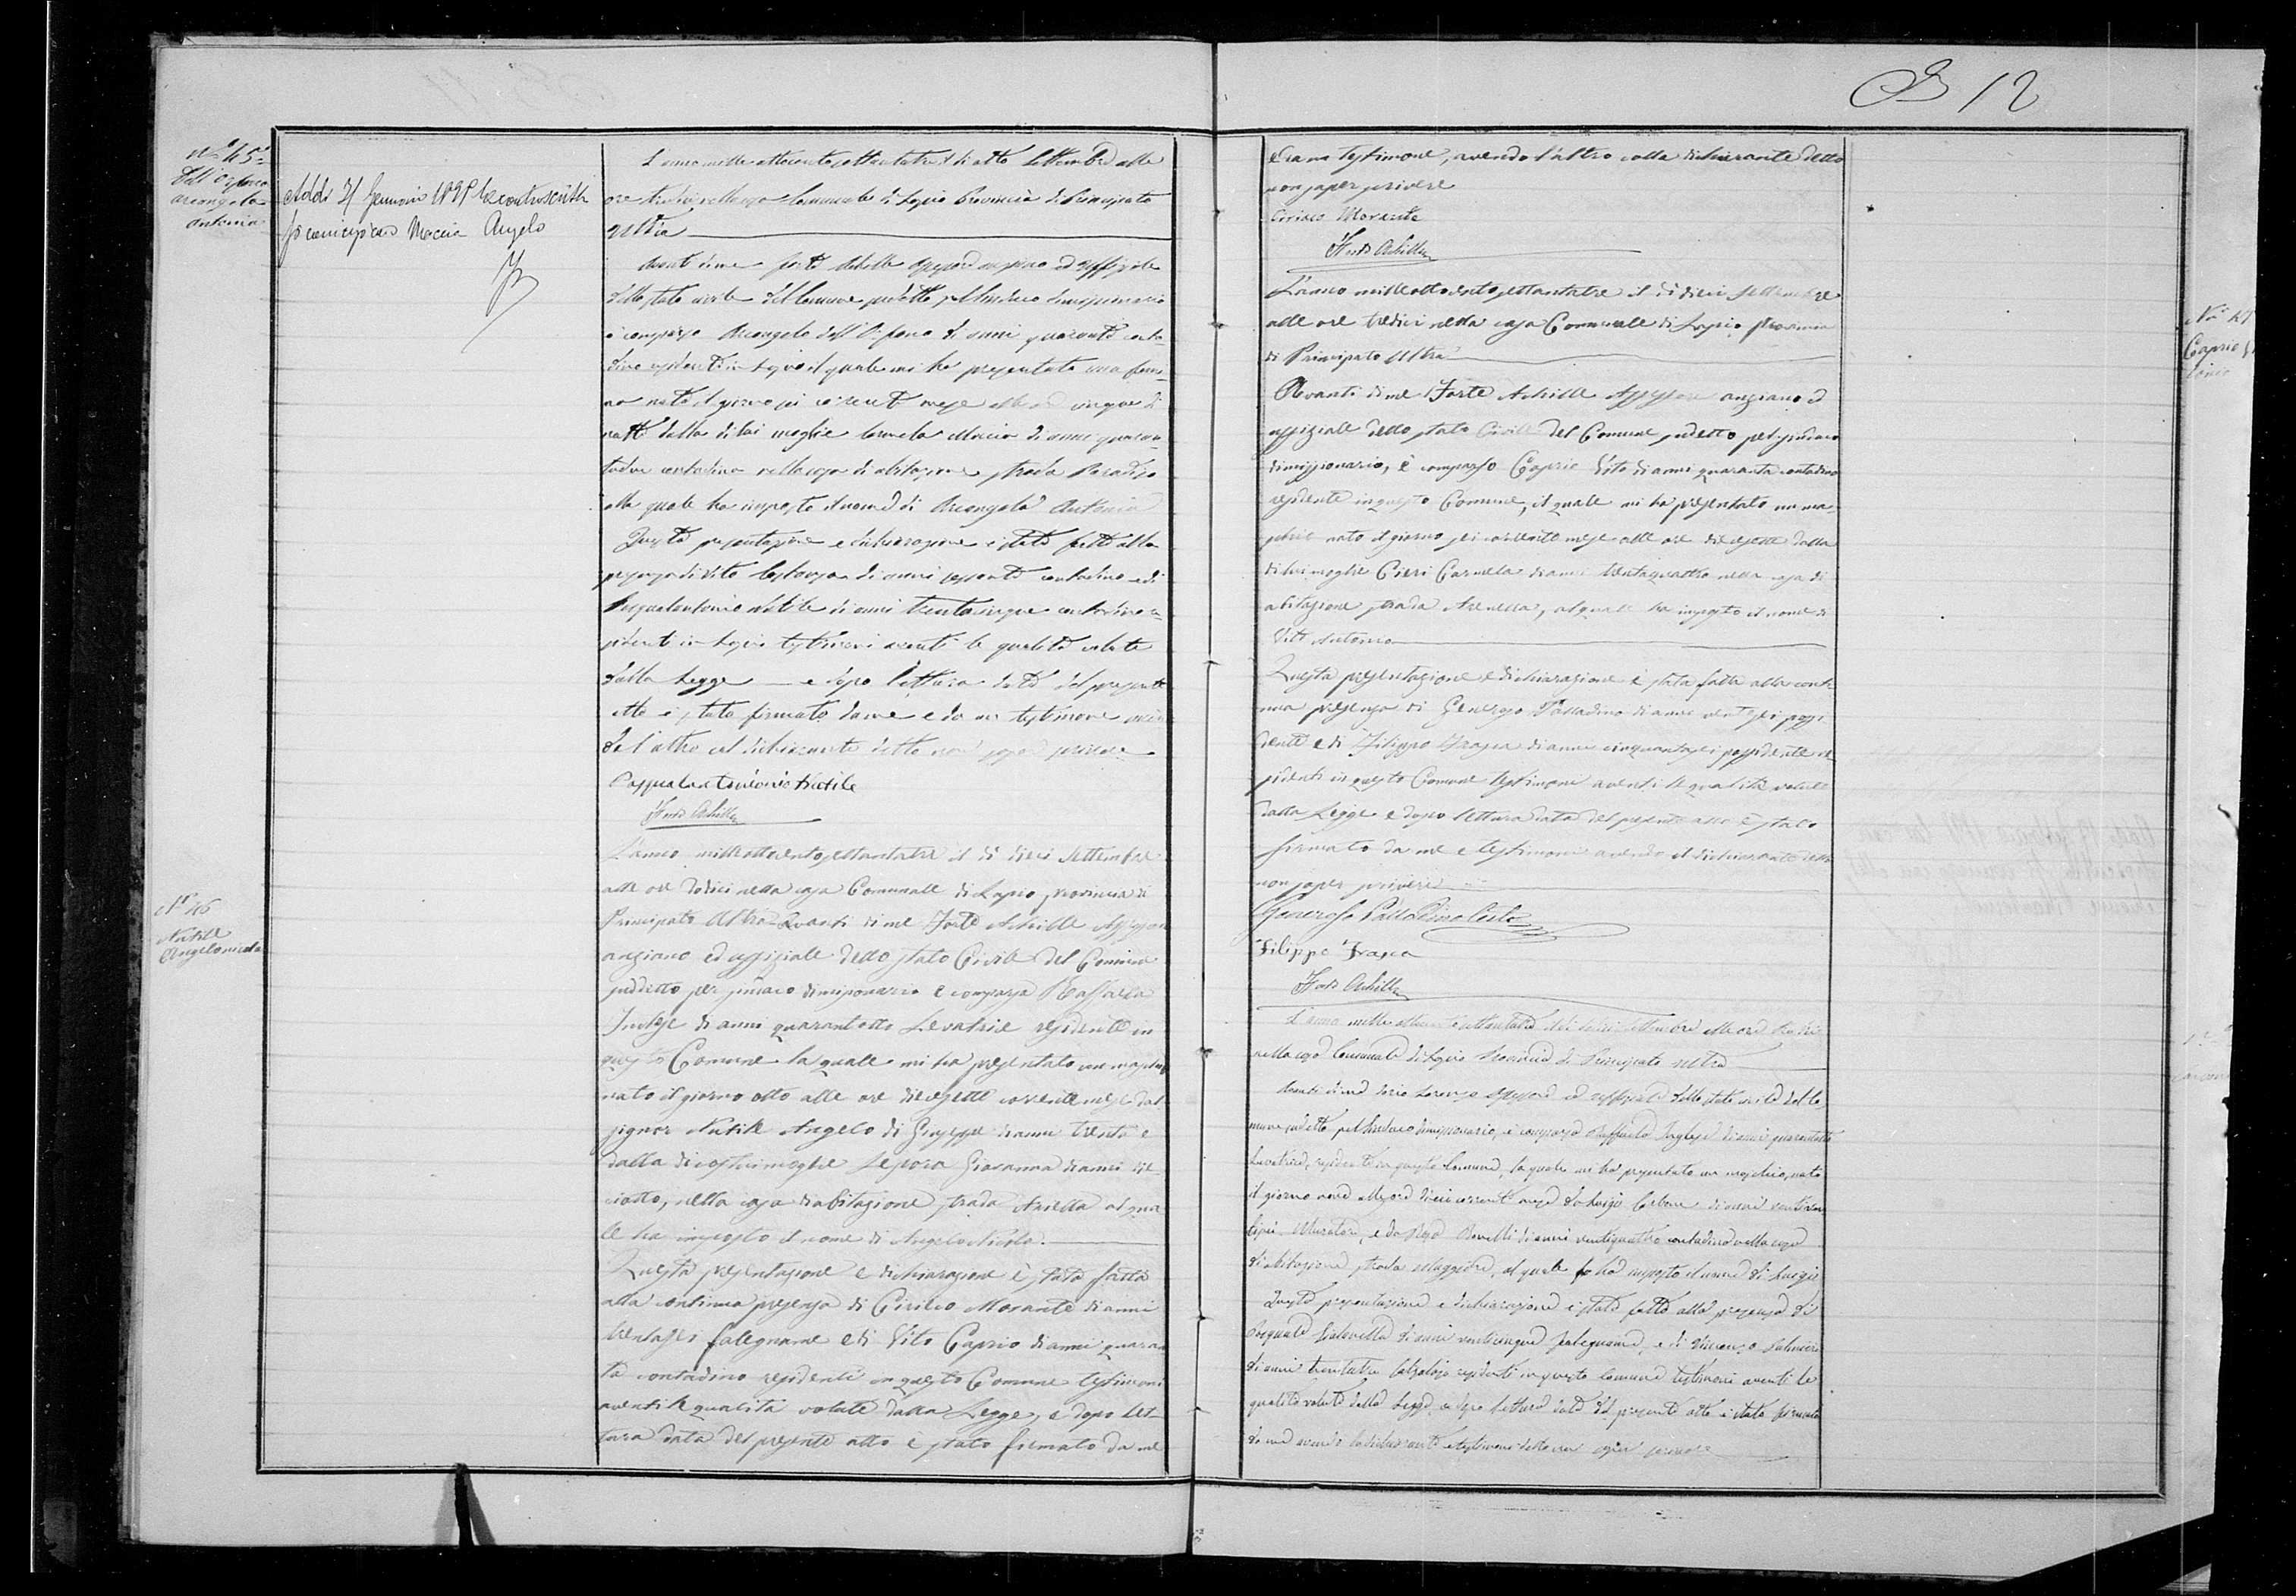 12
N° 45
Dell'Orfano
Arcangela
Antonia
Addì 21 Gennaio la controscritta
si unisce con Maccia Angelo
L'anno mille ottocento settantatre il dì otto Settembre alle
ore tredici nella casa Comunale di Lapio Provincia di Principato
Ultra
Avanti di me Forte Achille Assessore anziano ed uffiziale
dello stato civile del Comune suddetto pel Sindaco dimissionario
è comparso Arcangelo dell'Orfano di anni quaranta conta-
dino residente in Lapio il quale mi ha presentato una femi-
na nata il giorno sei corrente mese alle ore cinque di
notte dalla di lui moglie Carmela Maccia di anni quaran-
tadue contadina nella casa di abitazione strada Paradiso
alla quale ha imposto il nome di Arcangela Antonia
Questa presentazione e dichiarazione è stata fatta alla
presenza di Vito di anni sessanta contadino e di
Pasqualantonio Natile di anni trentacinque contadino re-
sidenti in Lapio testimoni aventi le qualità volute
dalla Legge e dopo lettura data del presente
atto è stato firmato da me e da un testimone
do l'altro col dichiarante detto non saper scrivere
Pasqualantonio Natile
Forte Achille
N° 46
Natile
Angelonicola
L'anno milleottocentosettantatre il dì dieci Settembre
alle ore dodici nella casa Comunale di Lapio provincia di
Principato Ultra Avanti di me Forte Achille Assessore
anziano ed uffiziale dello stato Civile del Comune
suddetto per sindaco dimissionario è comparsa Raffaela
Inglese di anni quarantotto Levatrice residente in
questo Comune la quale mi ha presentato un maschio
nato il giorno otto alle ore diecisette corrente mese dal
signor Natile Angelo di Giuseppe di anni trenta e
dalla di costui moglie Lepora Giovanna di anni die-
ciotto, nella casa di abitazione strada Ariella al qua-
le ha imposto il nome di Angelo Nicola.
Questa presentazione e dichiarazione è stata fatta
alla continua presenza di Ciriaco Morante di anni
trentasei falegname e di Vito Caprio di anni quaran-
ta contadino residenti in questo Comune testimoni
aventi le qualità volute dalla Legge, e dopo let-
tura data del presente atto è stato firmato da me
e da un testimone, avendo l'altro colla dichiarante detto
non saper scrivere
Ciriaco Morante
Forte Achille
N° 47
Caprio
L'anno milleottocentosettantatre il dì dieci Settembre
alle ore tredici nella casa Comunale di Lapio provincia
di Principato Ultra
Avanti di me Forte Achille Assessore anziano ed
uffiziale dello stato Civile del Comune suddetto pel sindaco
dimissionario, è comparso Caprio Vito di anni quaranta contadino
residente in questo Comune, il quale mi ha presentato un ma-
schio nato il giorno sei corrente mese alle ore diecisette dalla
di lui moglie Cieri Carmela di anni trentaquattro nella casa di
abitazione strada Arenella, al quale ha imposto il nome di
Vito Antonio
Questa presentazione e dichiarazione è stata fatta alla conti-
nua presenza di Generoso Palladino di anni ventisei possi-
dente e di Filippo Frasca di anni cinquantasei possidente re-
sidenti in questo Comune testimoni aventi le qualità volute
dalla Legge e dopo lettura data del presente atto è stato
firmato da me e testimoni avendo il dichiarante detto
non saper scrivere
Generoso Palladino
Filippo Frasca
Forte Achille
L'anno mille ottocento settantatre il dì dieci settembre alle ore
nella casa Comunale di Lapio Provincia di Principato Ultra
Avanti di me Lorenzo Assessore ed uffiziale dello stato civile del Co-
mune suddetto pel Sindaco dimissionario, è comparsa Raffaela Inglese di anni quarantotto
Levatrice, residente in questo Comune, la quale mi ha presentato un maschio, nato
il giorno nove alle ore dieci corrente mese da Luigi Carbone di anni
Muratore, e da Rosa di anni ventiquattro contadina nella casa
di abitazione strada Maggiore, al quale ha imposto il nome di Luigi
Questa presentazione e dichiarazione è stata fatta alla presenza di
Pasquale di anni venticinque falegname, e di Vincenzo
di anni trentatre calzolaio residenti in questo Comune testimoni aventi le
qualità volute dalla Legge, e dopo lettura data del presente atto è stato firmato
da me avendo la dichiarante e testimoni detto non saper scrivere